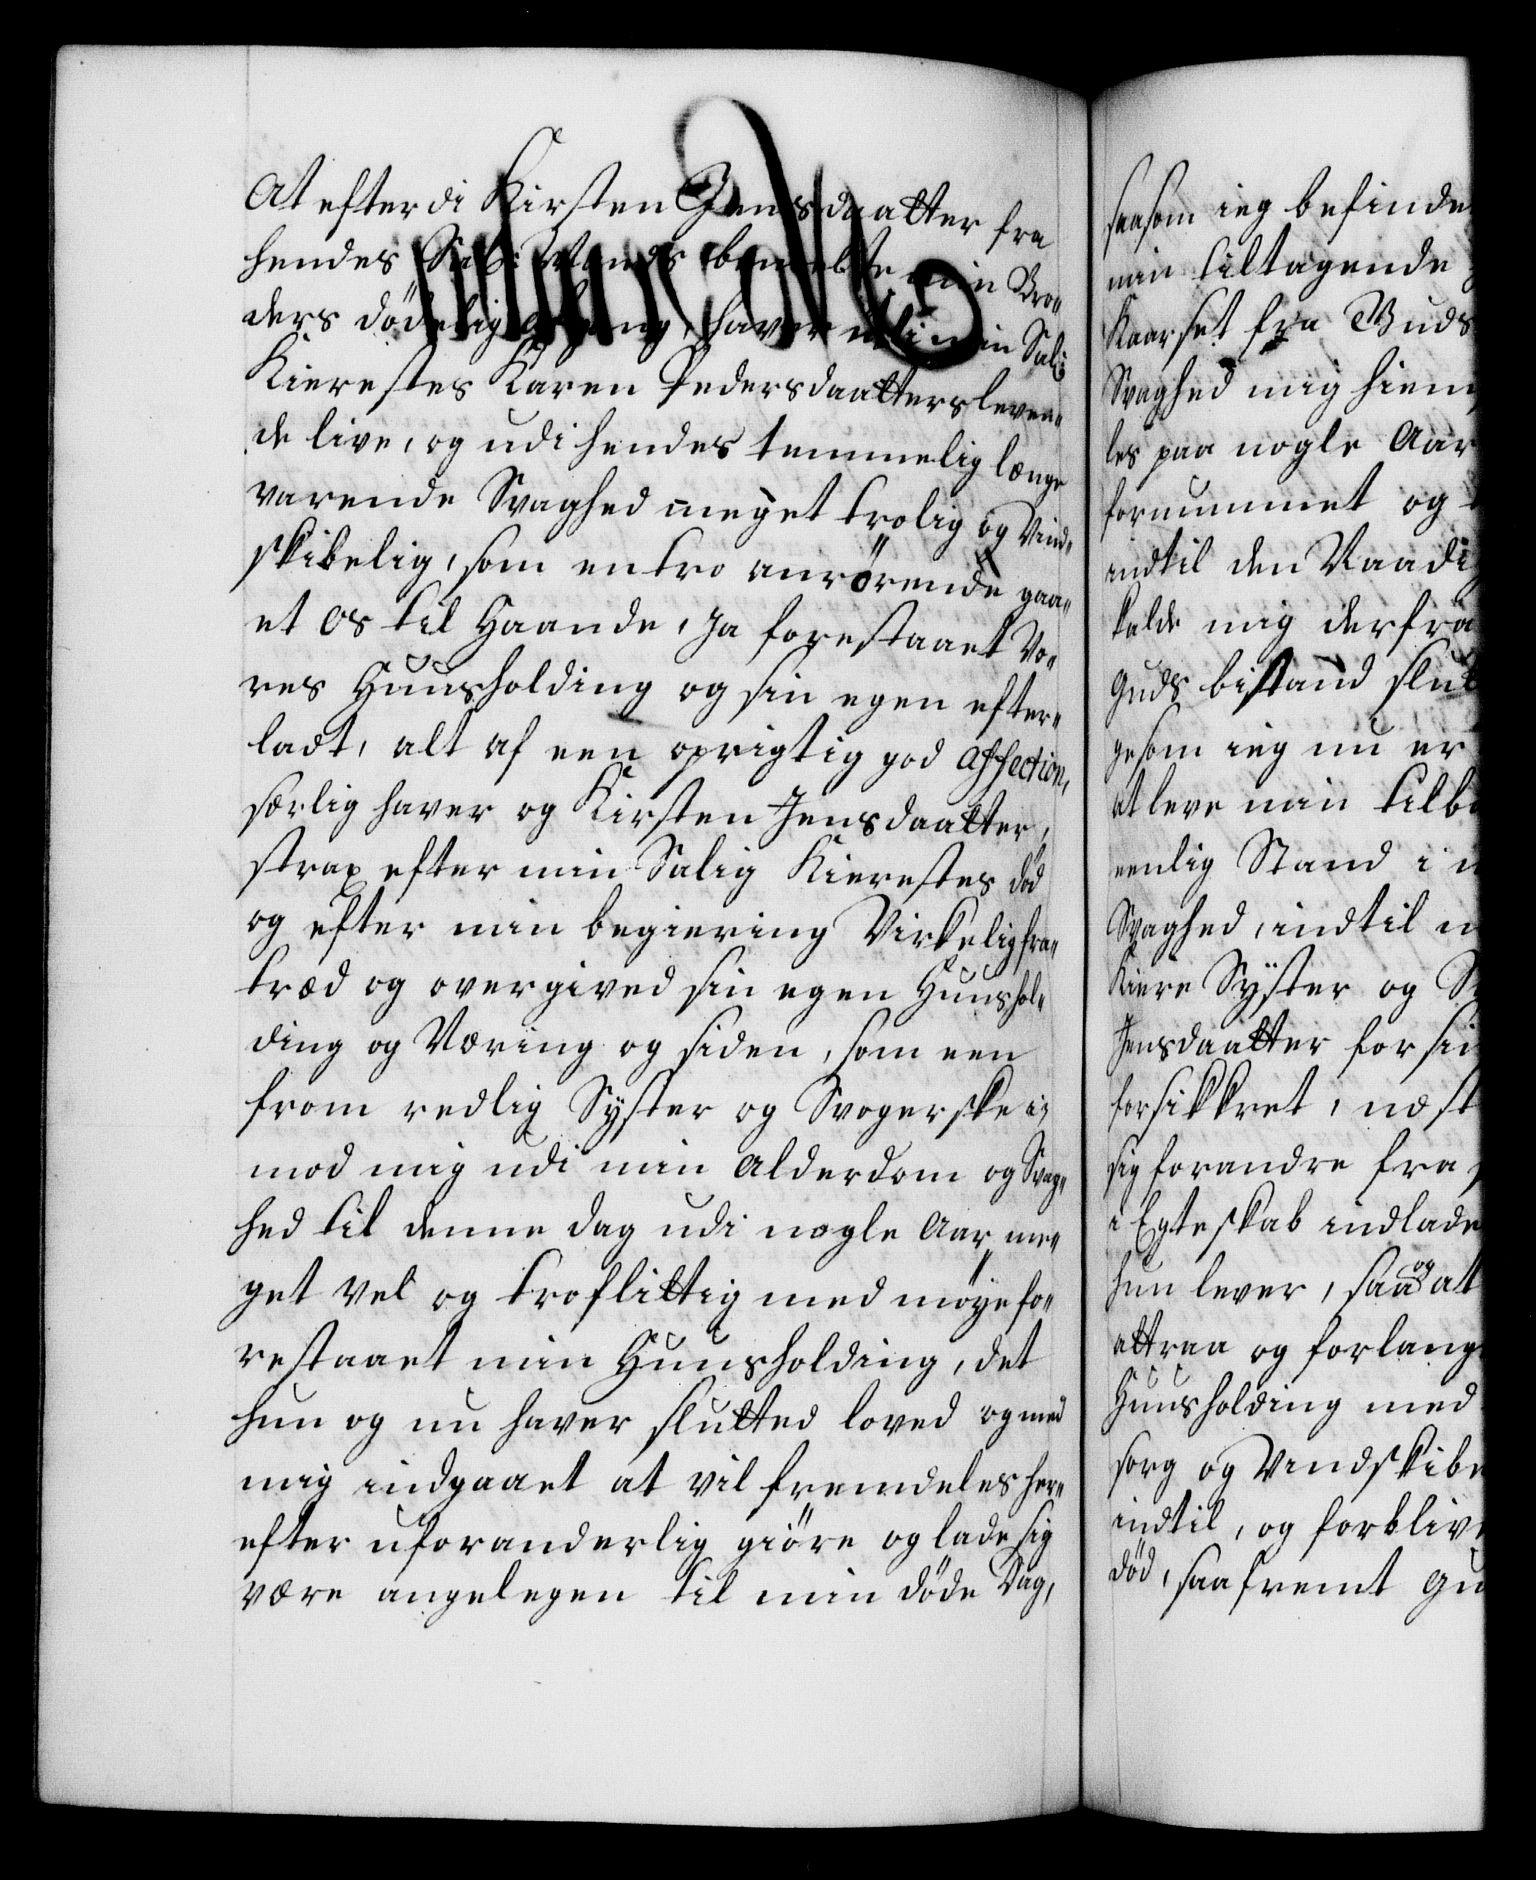 At efterdi Kirsten Jensdaatter fra
hendes Sal: Mands bemelte min Bro„
ders dödelig afgang, haver udi min Sal:
Kierestes Karen Pedersdaatters leven„
de live, og udi hendes temmelig længe
varende Svaghed meget trolig og Vind„
skibelig, som en tro anrörende gaa„
et os til Haande, Ja forestaaet Vo„
res Huusholding og sin egen efter„
ladt, alt af een oprigtig god affection,
særlig haver og Kirsten Jensdaatter,
strax efter min Salig Kierestes död
og efter min begiering Virkelig fra„
træd og overgived sin egen Huushol„
ding og Næring og siden, som een
from redlig Syster og Svogerske i„
mod mig udi min Alderdom og Svag„
hed til denne dag udi nogle Aar, me„
get vel og troflittig med möye fo„
restaaet min Huusholding, det
hun og nu haver slutted loved og med
mig indgaaet at vil fremdeles her„
efter uforanderlig giöre og lade sig
være angelegen til min döde Dag,
saasom ieg befinde
min tiltagende
Kaarset fra Guds
Svaghed mig hiem
les paa nogle Aar
fornummet og
indtil den Naadi
kalde mig derfra
Guds bistand slut
gesom ieg nu er
at leve min tilb
eenlig Stand i
Svaghed, indtil
Kiere Syster og Sv
Jensdaatter for sin
forsikkret, næst
sig forandre fra
i Egteskab indlade
hun lever, saa og at
attraa og forlang
Huusholding med
sorg og Vindskibe
indtil, og forblive
död, saafremt Gu